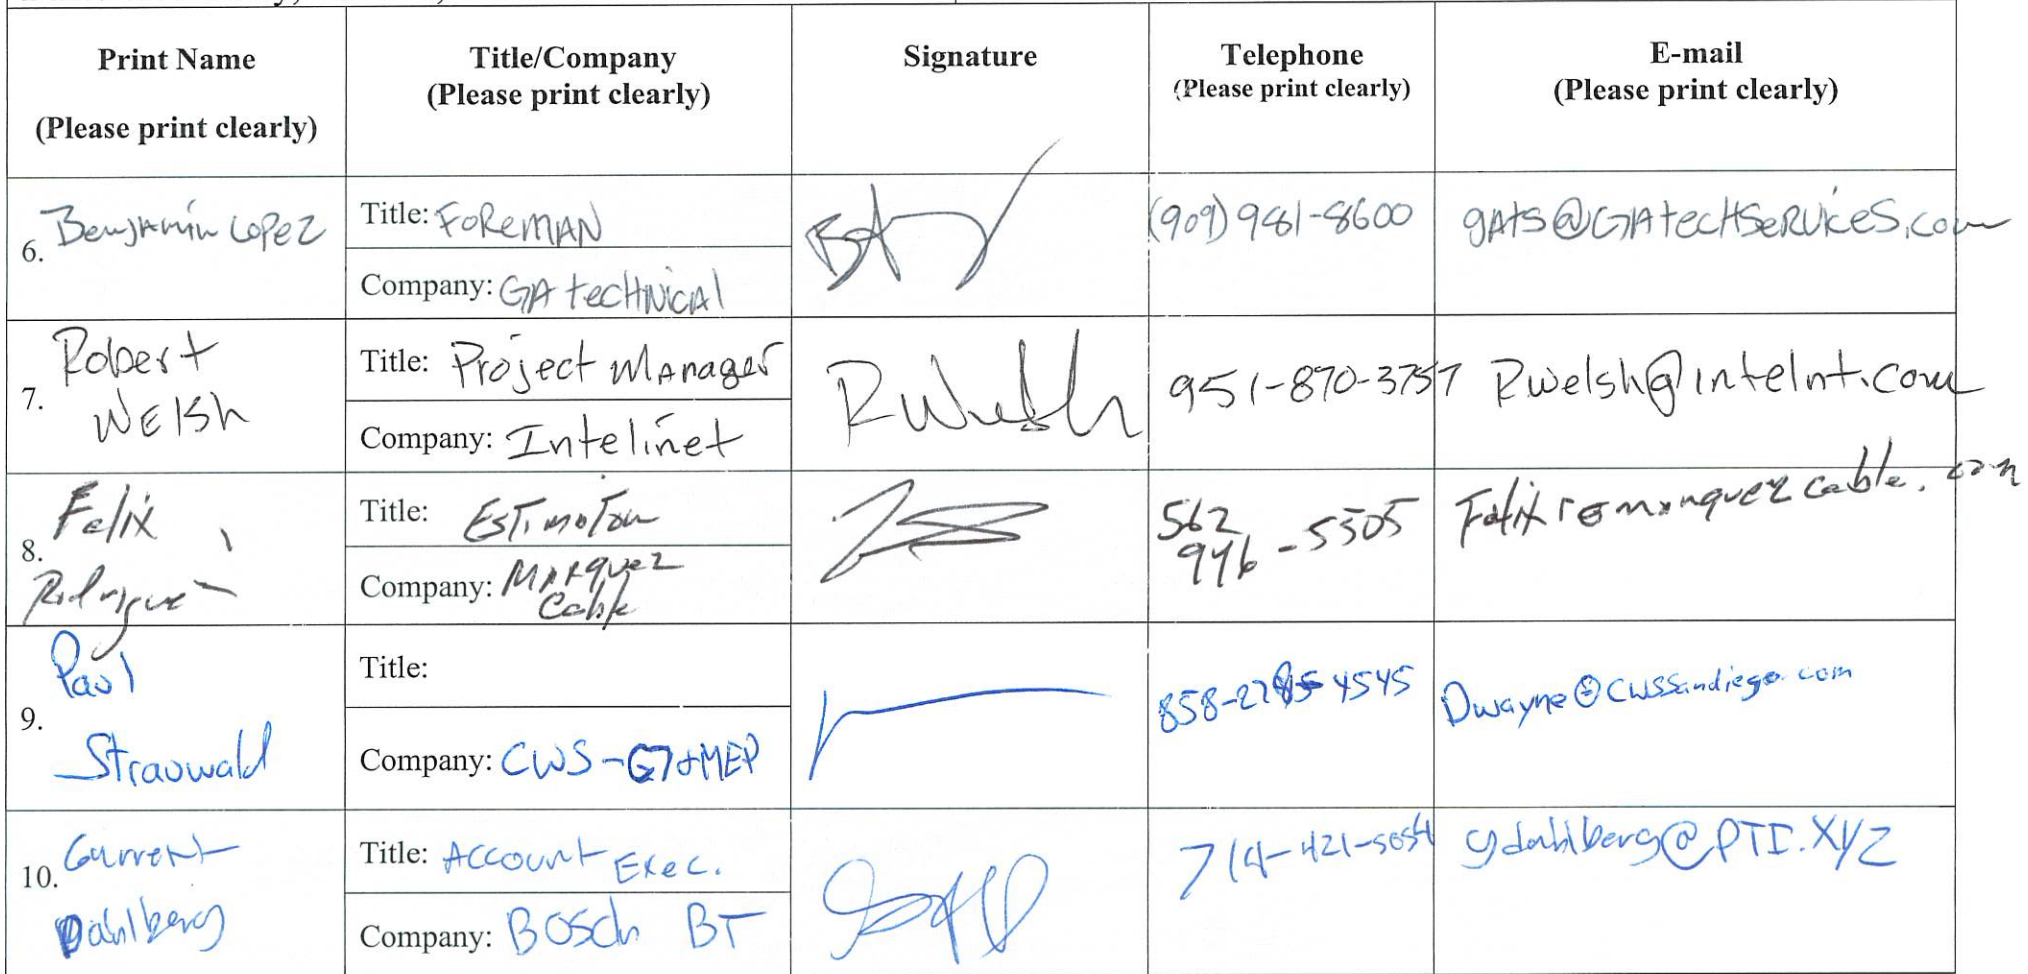 Print Name
(Please print clearly)
Title/Company
(Please print clearly)
Signature
Telephone
(Please print clearly)
E-mail
(Please print clearly)
6. Benjamin Lopez
Title: FOREMAN
Company: GA tecHNicAl
(909) 981-8600
gAts@GAtecHSeRvices.com
7. Robert
WElsh
Title: Project Manager
Company: Intelinet
RWelsh
951-870-3757
Rwelsh@intelnt.com
8. Felix
Rodriguez
Title: Estimator
Company: MARquez
Cable
562
946-5505
Felixr@marquezcable.com
9. Paul
Strauwald
Title:
Company: CWS-G7&MEP
858-4545
Dwayne@cwssandiego.com
10. Garrett
Dahlberg
Title: Account Exec.
Company: BOSCH BT
714-421-5054
gdahlberg@PTI.XYZ